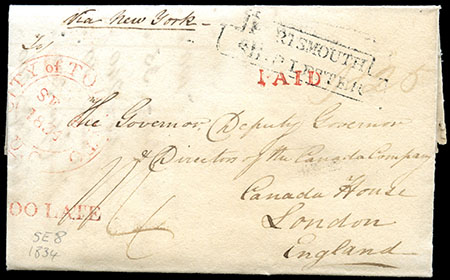 via New York
To
PORTSMOUTH
SHIP LETTER
PAID
CITY of TO
SE
The Governor, Deputy Governor
& Directors of the Canada Company
Canada House
London
England
TOO LATE
SE 8
1834